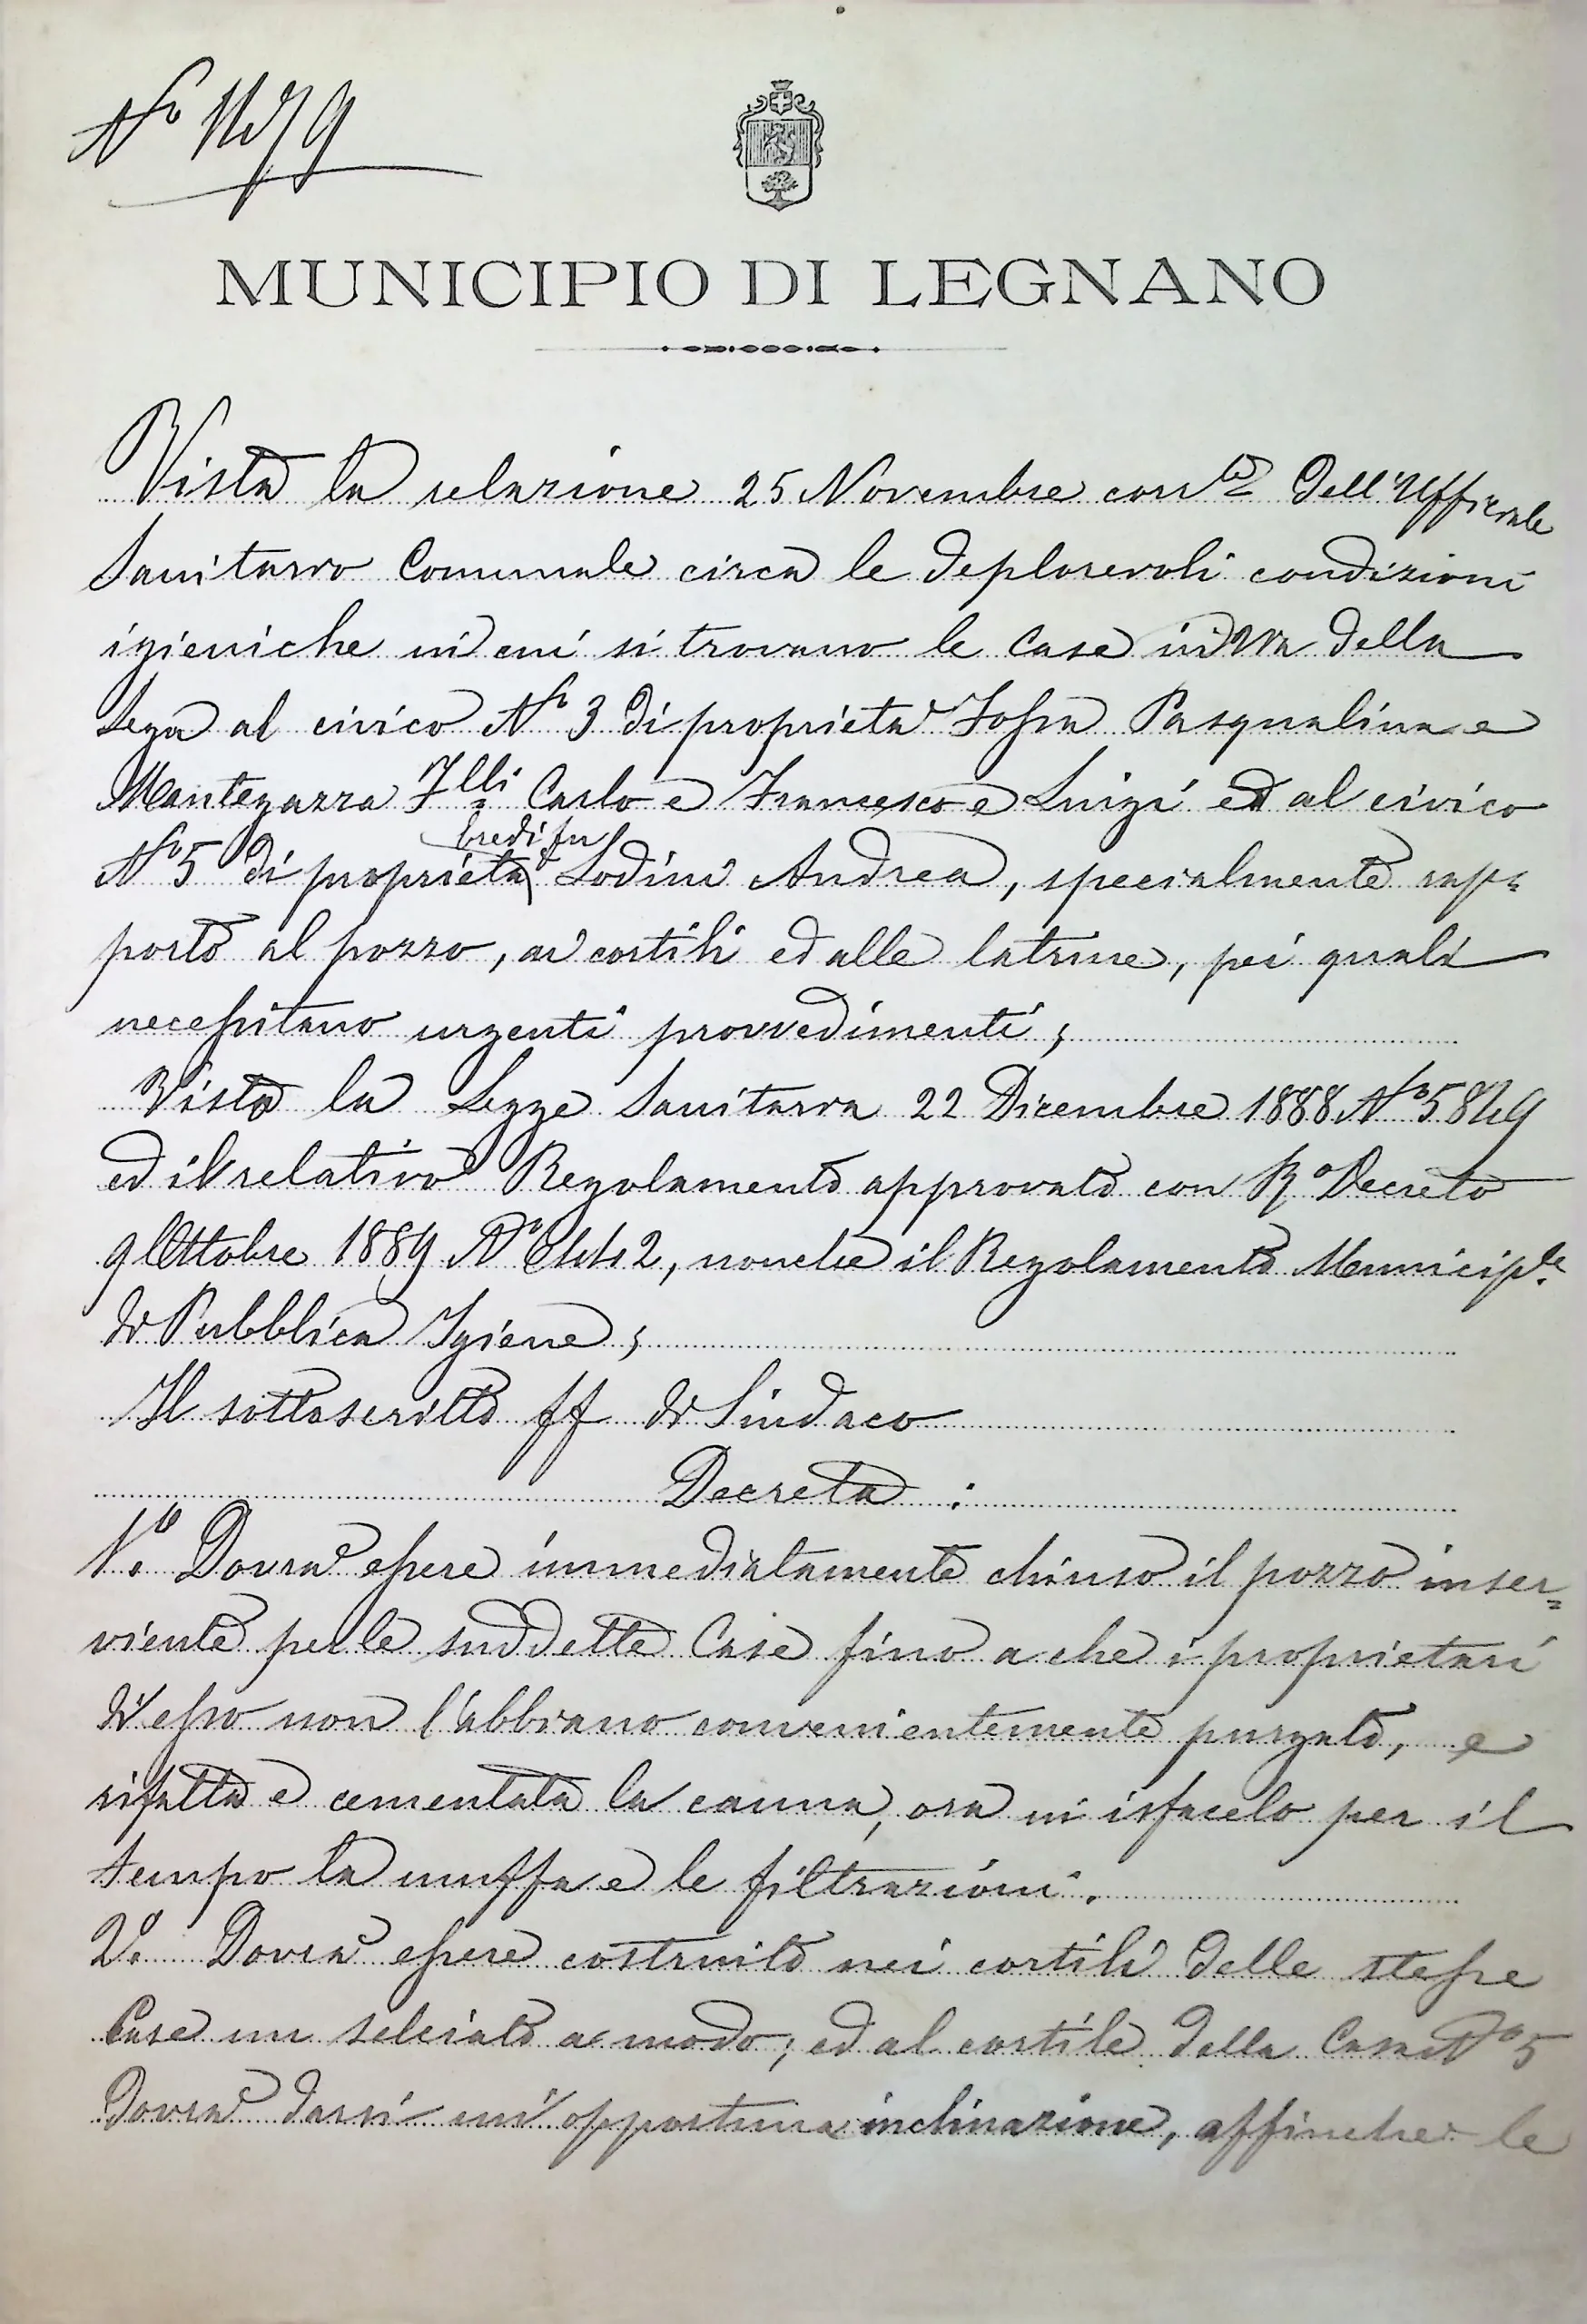 MUNICIPIO DI LEGNANO
Vista la relazione 25 Novembre corr.te dell'Ufficiale
Sanitario Comunale circa le deplorevoli condizioni
igieniche in cui si trovano le Case in Via della
Lega al civico N.o 3 di proprietà Pasqualina e
Mantegazza F.lli Carlo e Francesco e Luigi ed al civico
Eredi fu
N.o 5 di proprietà Lodini Andrea, specialmente rap-
porto al pozzo, ai cortili ed alle latrine, pei quali
necessitano urgenti provvedimenti;
Vista la Legge Sanitaria 22 Dicembre 1888 N.o 5849
ed il relativo Regolamento approvato con R.o Decreto
9 Ottobre 1889 N.o 6442, nonche il Regolamento Municip.le
di Pubblica Igiene;
Il sottoscritto ff di Sindaco
Decreta:
1.o Dovrà essere immediatamente chiuso il pozzo inser-
viente per le suddette Case fino a che i proprietari
di esso non l'abbiano convenientemente purgato, e
rifatta e cementata la canna, ora in isfacelo per il
tempo la muffa e le filtrazioni.
2.o Dovrà essere costruito nei cortili delle stesse
Case un selciato a modo; ed al cortile della Casa N.o 5
dovrà darsi un'opportuna inclinazione, affinche le